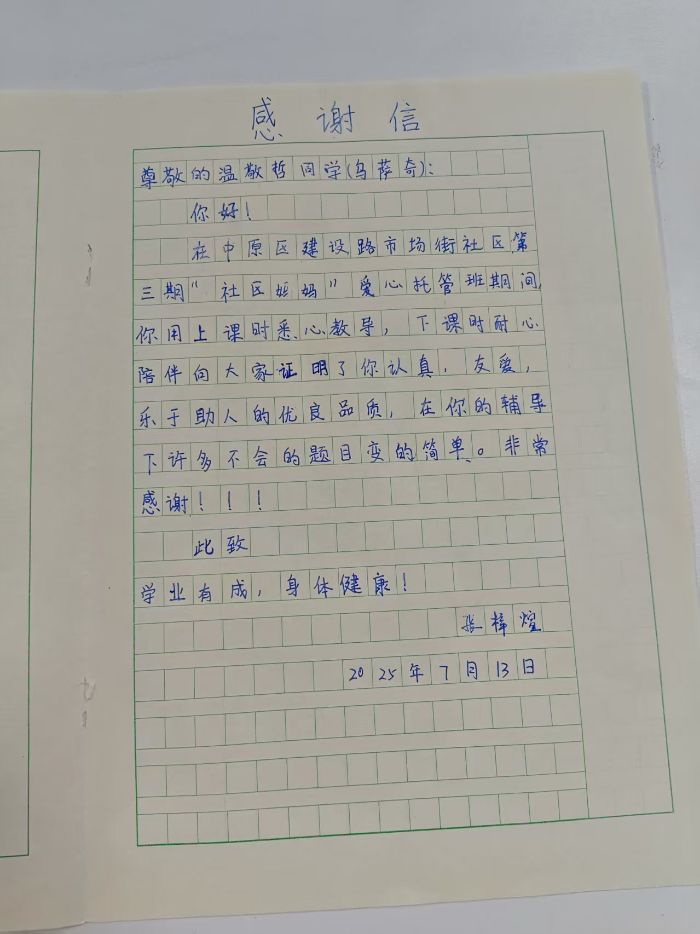 感谢信
尊敬的温敬哲同学(乌萨奇):
你好!
在中原区建设路市场街社区第
三期“社区妈妈”爱心托管班期间,
你用上课时悉心教导,下课时耐心
陪伴向大家证明了你认真,友爱,
乐于助人的优良品质,在你的辅导
下许多不会的题目变的简单。非常
感谢!!!
此致
学业有成,身体健康!
张梓煊
2025年7月13日